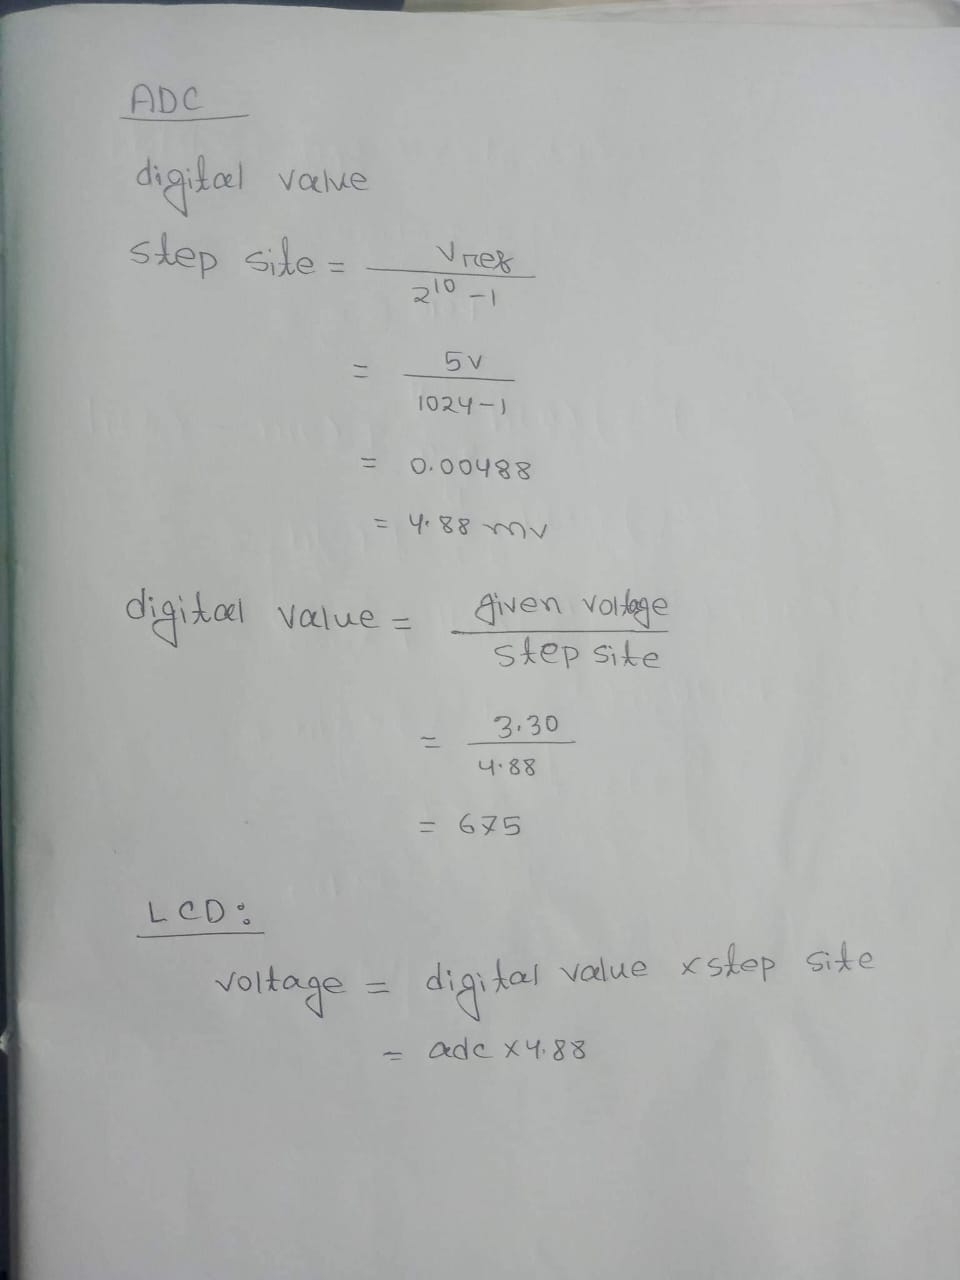 ADC
digital value
step site = Vref / 2^10 - 1
= 5v / 1024-1
= 0.00488
= 4.88 mv
digital value = given voltage / step site
= 3.30 / 4.88
= 675
LCD:
voltage = digital value x step site
= adc x 4.88